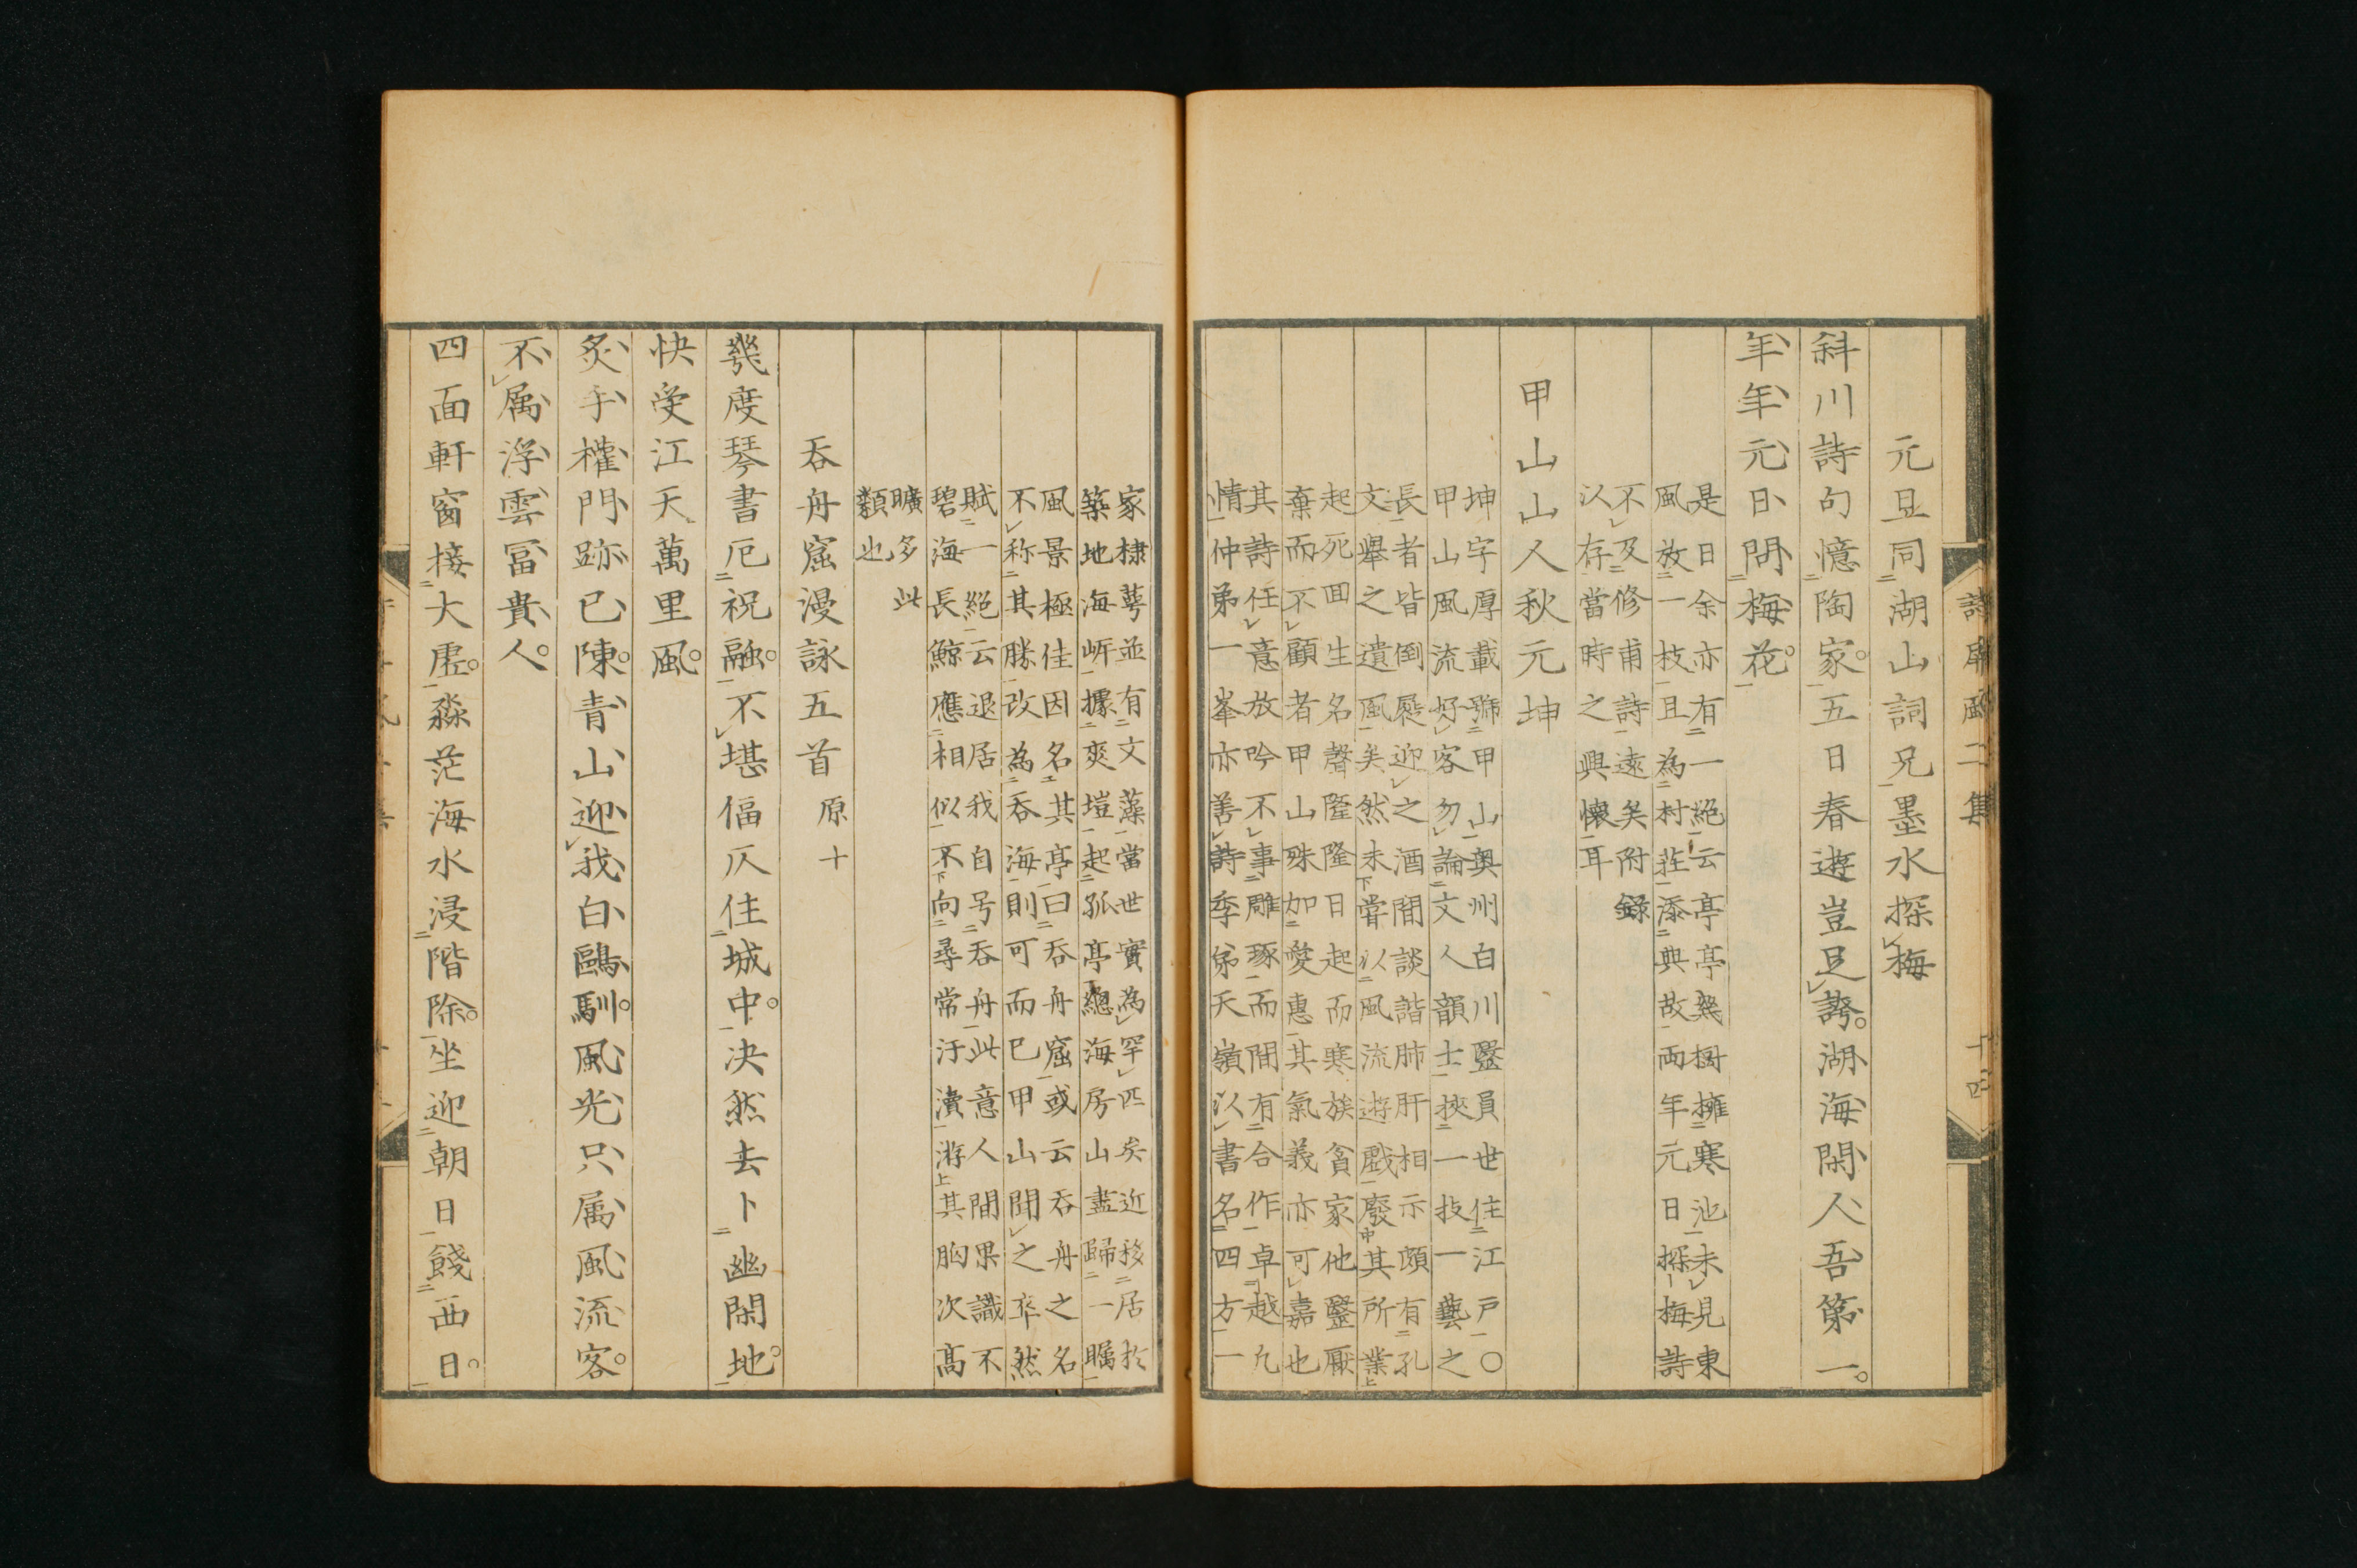 詩屏風二集
十四
元旦同湖山詞兄墨水探梅
斜川詩句憶陶家五日春遊豈足誇湖海閑人吾第一
年年元日問梅花
是日余亦有一絕云亭亭幾樹擁寒池未見東
風放一枝且為村莊添典故兩年元日探梅詩
不及修甫詩遠矣附錄
以存當時之興懷耳
甲山山人秋元坤
坤字厚載號甲山奧州白川醫員世住江戸〇
甲山風流好客勿論文人韻士挾一技一藝之
長者皆倒屣迎之酒間談諧肺肝相示頗有孔
文舉之遺風矣然未嘗以風流遊戲廢其所業
起死回生名聲隆隆日起而寒族貧家他醫厭
棄而不顧者甲山殊加愛惠其氣義亦可嘉也
其詩任意放吟不事雕琢而間有合作卓越九
情仲弟一峯亦善詩季弟天嶺以書名四方一
家棣萼並有文藻當世實為罕匹矣近移居於
築地海岸據爽塏起孤亭總海房山盡歸一矚
風景極佳因名其亭曰吞舟窟或云吞舟之名
不称其勝改為吞海則可而已甲山聞之率然
賦一絕云退居我自号吞舟此意人間果識不
碧海長鯨應相似不向尋常汙瀆游其胸次高
曠多此
類也
吞舟窟漫詠五首 原十
幾度琴書厄祝融不堪偪仄住城中决然去卜幽閑地
快受江天萬里風
炙手權門跡已陳青山迎我白鷗馴風光只属風流客
不属浮雲冨貴人
四面軒窗接大虛淼茫海水浸階除坐迎朝日餞西日